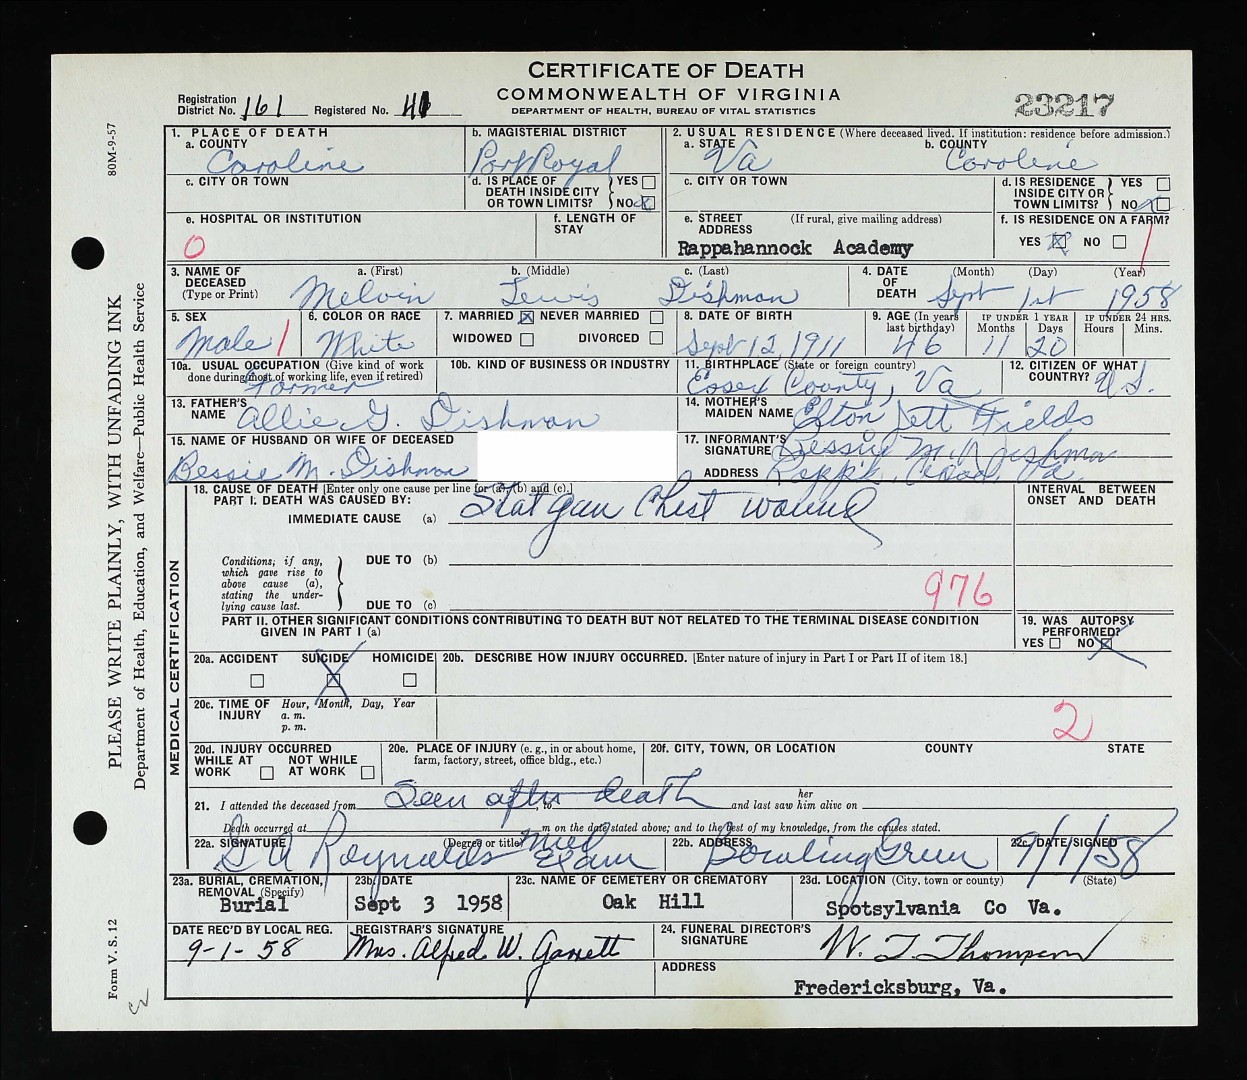 CERTIFICATE OF DEATH
COMMONWEALTH OF VIRGINIA
DEPARTMENT OF HEALTH, BUREAU OF VITAL STATISTICS
Registration District No. 161 Registered No. 41
23217
80M-9-57
PLEASE WRITE PLAINLY, WITH UNFADING INK
Department of Health, Education, and Welfare—Public Health Service
Form V. S. 12
1. PLACE OF DEATH
a. COUNTY Caroline
b. MAGISTERIAL DISTRICT Port Royal
2. USUAL RESIDENCE (Where deceased lived. If institution: residence before admission.)
a. STATE Va
b. COUNTY Caroline
c. CITY OR TOWN
d. IS PLACE OF DEATH INSIDE CITY OR TOWN LIMITS? YES NO X
c. CITY OR TOWN
d. IS RESIDENCE INSIDE CITY OR TOWN LIMITS? YES NO X
e. HOSPITAL OR INSTITUTION
0
f. LENGTH OF STAY
e. STREET ADDRESS (If rural, give mailing address)
Rappahannock Academy
f. IS RESIDENCE ON A FARM?
YES X NO 1
3. NAME OF DECEASED (Type or Print)
a. (First) b. (Middle) c. (Last)
Melvin Lewis Dishman
4. DATE OF DEATH (Month) (Day) (Year)
Sept 1st 1958
5. SEX
Male 1
6. COLOR OR RACE
White
7. MARRIED X NEVER MARRIED
WIDOWED DIVORCED
8. DATE OF BIRTH
Sept 12, 1911
9. AGE (In years last birthday) 46
IF UNDER 1 YEAR Months 11 Days 20
IF UNDER 24 HRS. Hours Mins.
10a. USUAL OCCUPATION (Give kind of work done during most of working life, even if retired)
Farmer
10b. KIND OF BUSINESS OR INDUSTRY
11. BIRTHPLACE (State or foreign country)
Essex County, Va
12. CITIZEN OF WHAT COUNTRY? U.S.
13. FATHER'S NAME Allie G. Dishman
14. MOTHER'S MAIDEN NAME Elton Jett Fields
15. NAME OF HUSBAND OR WIFE OF DECEASED
Bessie M. Dishman
17. INFORMANT'S SIGNATURE Bessie M. Dishman
ADDRESS Rapp'k. Acad, Va.
MEDICAL CERTIFICATION
18. CAUSE OF DEATH [Enter only one cause per line for (a), (b) and (c).]
PART I. DEATH WAS CAUSED BY:
IMMEDIATE CAUSE (a) Shot gun Chest wound
INTERVAL BETWEEN ONSET AND DEATH
Conditions; if any, which gave rise to above cause (a), stating the underlying cause last.
DUE TO (b)
DUE TO (c)
976
PART II. OTHER SIGNIFICANT CONDITIONS CONTRIBUTING TO DEATH BUT NOT RELATED TO THE TERMINAL DISEASE CONDITION GIVEN IN PART I (a)
19. WAS AUTOPSY PERFORMED?
YES NO X
20a. ACCIDENT SUICIDE X HOMICIDE
20b. DESCRIBE HOW INJURY OCCURRED. [Enter nature of injury in Part I or Part II of item 18.]
20c. TIME OF INJURY Hour, Month, Day, Year
a. m.
p. m.
2
20d. INJURY OCCURRED
WHILE AT WORK NOT WHILE AT WORK
20e. PLACE OF INJURY (e. g., in or about home, farm, factory, street, office bldg., etc.)
20f. CITY, TOWN, OR LOCATION COUNTY STATE
21. I attended the deceased from Seen after death, to and last saw her him alive on
Death occurred at m on the date stated above; and to the best of my knowledge, from the causes stated.
22a. SIGNATURE (Degree or title)
Reynolds Med Exam
22b. ADDRESS
Bowling Green
22c. DATE SIGNED
9/1/58
23a. BURIAL, CREMATION, REMOVAL (Specify)
Burial
23b. DATE
Sept 3 1958
23c. NAME OF CEMETERY OR CREMATORY
Oak Hill
23d. LOCATION (City, town or county) (State)
Spotsylvania Co Va.
DATE REC'D BY LOCAL REG.
9-1-58
REGISTRAR'S SIGNATURE
Mrs. Alfred W. Garrett
24. FUNERAL DIRECTOR'S SIGNATURE
W. T. Thompson
ADDRESS
Fredericksburg, Va.